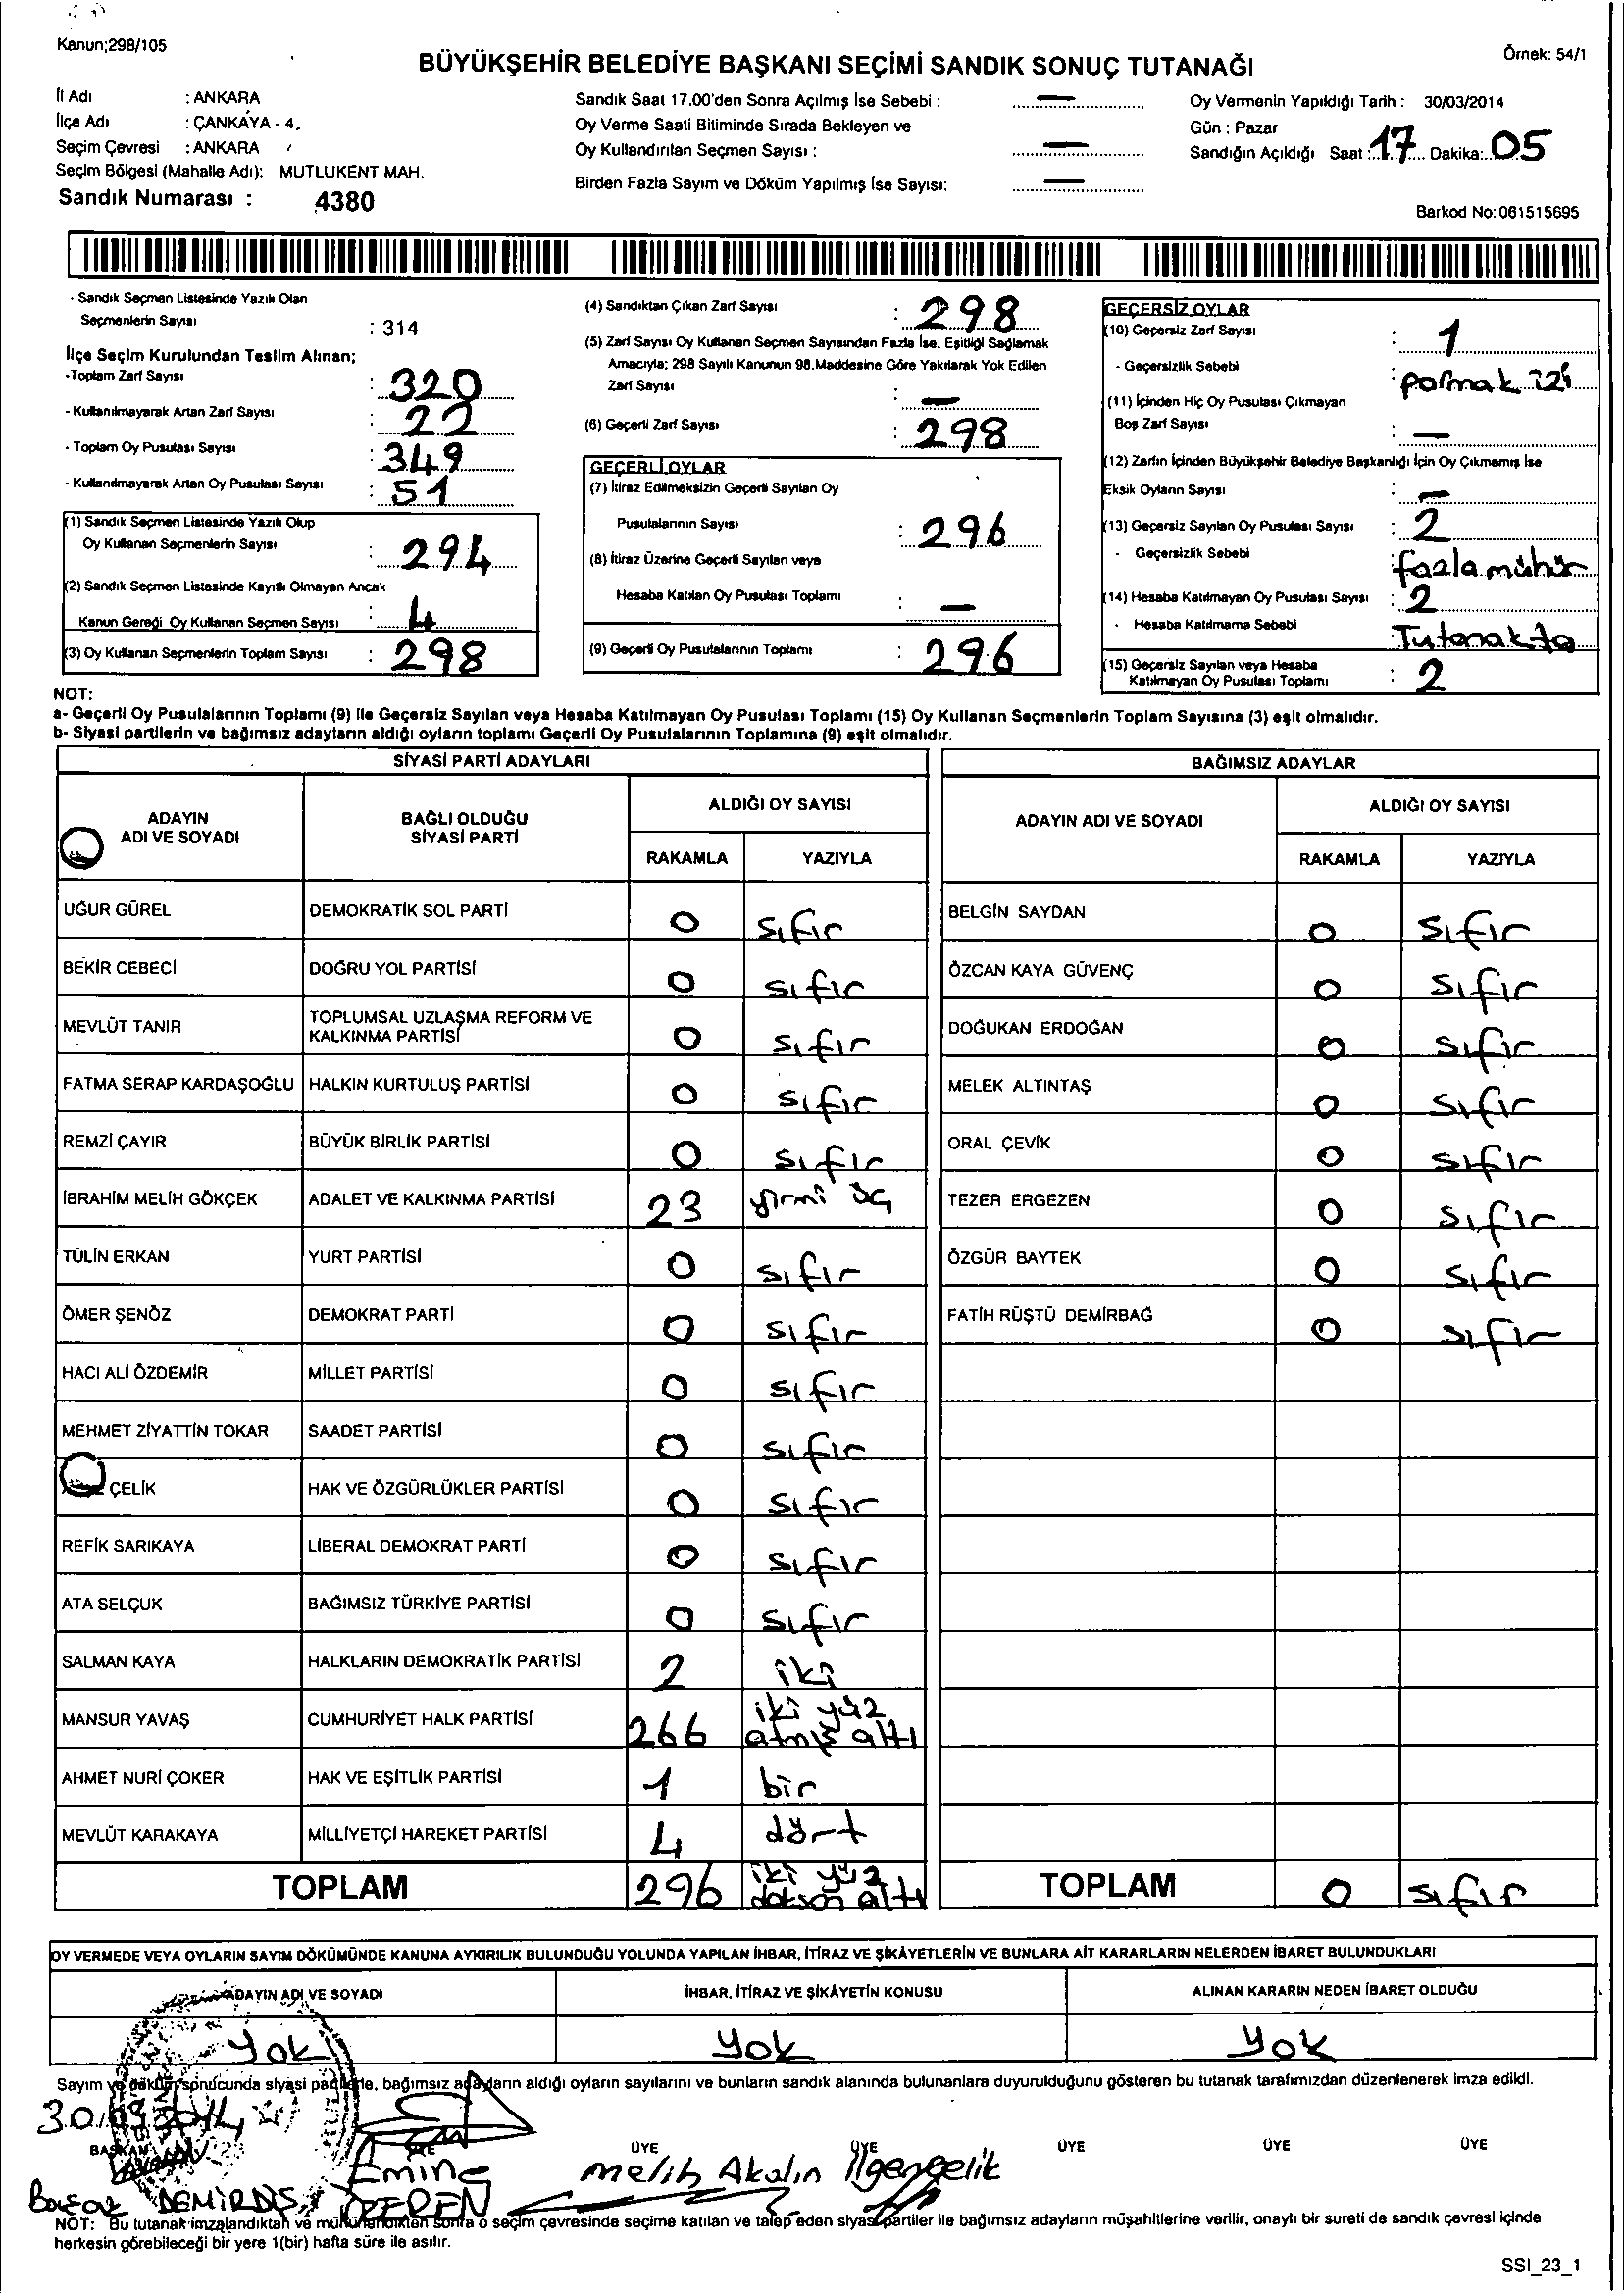 Kanun;298/105
Örnek: 54/1
BÜYÜKŞEHİR BELEDİYE BAŞKANI SEÇİMİ SANDIK SONUÇ TUTANAĞI
İl Adı : ANKARA
İlçe Adı : ÇANKAYA - 4,
Seçim Çevresi : ANKARA
Seçim Bölgesi (Mahalle Adı): MUTLUKENT MAH.
Sandık Numarası : 4380
Sandık Saat 17.00'den Sonra Açılmış İse Sebebi : —
Oy Verme Saati Bitiminde Sırada Bekleyen ve
Oy Kullandırılan Seçmen Sayısı : —
Birden Fazla Sayım ve Döküm Yapılmış İse Sayısı: —
Oy Vermenin Yapıldığı Tarih : 30/03/2014
Gün : Pazar
Sandığın Açıldığı Saat : 17 Dakika: 05
Barkod No: 061515695
- Sandık Seçmen Listesinde Yazılı Olan
Seçmenlerin Sayısı : 314
İlçe Seçim Kurulundan Teslim Alınan;
-Toplam Zarf Sayısı : 320
- Kullanılmayarak Artan Zarf Sayısı : 22
- Toplam Oy Pusulası Sayısı : 349
- Kullanılmayarak Artan Oy Pusulası Sayısı : 51
(1) Sandık Seçmen Listesinde Yazılı Olup
Oy Kullanan Seçmenlerin Sayısı : 294
(2) Sandık Seçmen Listesinde Kayıtlı Olmayan Ancak
Kanun Gereği Oy Kullanan Seçmen Sayısı : 4
(3) Oy Kullanan Seçmenlerin Toplam Sayısı : 298
(4) Sandıktan Çıkan Zarf Sayısı : 298
(5) Zarf Sayısı Oy Kullanan Seçmen Sayısından Fazla İse, Eşitliği Sağlamak
Amacıyla; 298 Sayılı Kanunun 98.Maddesine Göre Yakılarak Yok Edilen
Zarf Sayısı : —
(6) Geçerli Zarf Sayısı : 298
GEÇERLİ OYLAR
(7) İtiraz Edilmeksizin Geçerli Sayılan Oy
Pusulalarının Sayısı : 296
(8) İtiraz Üzerine Geçerli Sayılan veya
Hesaba Katılan Oy Pusulası Toplamı : —
(9) Geçerli Oy Pusulalarının Toplamı : 296
GEÇERSİZ OYLAR
(10) Geçersiz Zarf Sayısı : 1
- Geçersizlik Sebebi : parmak izi
(11) İçinden Hiç Oy Pusulası Çıkmayan
Boş Zarf Sayısı : —
(12) Zarfın İçinden Büyükşehir Belediye Başkanlığı İçin Oy Çıkmamış İse
Eksik Oyların Sayısı : —
(13) Geçersiz Sayılan Oy Pusulası Sayısı : 2
- Geçersizlik Sebebi : fazla mühür
(14) Hesaba Katılmayan Oy Pusulası Sayısı : 2
- Hesaba Katılmama Sebebi : Tutanakta
(15) Geçersiz Sayılan veya Hesaba
Katılmayan Oy Pusulası Toplamı : 2
NOT:
a- Geçerli Oy Pusulalarının Toplamı (9) ile Geçersiz Sayılan veya Hesaba Katılmayan Oy Pusulası Toplamı (15) Oy Kullanan Seçmenlerin Toplam Sayısına (3) eşit olmalıdır.
b- Siyasi partilerin ve bağımsız adayların aldığı oyların toplamı Geçerli Oy Pusulalarının Toplamına (9) eşit olmalıdır.
SİYASİ PARTİ ADAYLARI BAĞIMSIZ ADAYLAR
ADAYIN ADI VE SOYADI BAĞLI OLDUĞU SİYASİ PARTİ ALDIĞI OY SAYISI ADAYIN ADI VE SOYADI ALDIĞI OY SAYISI
RAKAMLA YAZIYLA RAKAMLA YAZIYLA
UĞUR GÜREL DEMOKRATİK SOL PARTİ 0 sıfır BELGİN SAYDAN 0 sıfır
BEKİR CEBECİ DOĞRU YOL PARTİSİ 0 sıfır ÖZCAN KAYA GÜVENÇ 0 sıfır
MEVLÜT TANIR TOPLUMSAL UZLAŞMA REFORM VE KALKINMA PARTİSİ 0 sıfır DOĞUKAN ERDOĞAN 0 sıfır
FATMA SERAP KARDAŞOĞLU HALKIN KURTULUŞ PARTİSİ 0 sıfır MELEK ALTINTAŞ 0 sıfır
REMZİ ÇAYIR BÜYÜK BİRLİK PARTİSİ 0 sıfır ORAL ÇEVİK 0 sıfır
İBRAHİM MELİH GÖKÇEK ADALET VE KALKINMA PARTİSİ 23 yirmi üç TEZER ERGEZEN 0 sıfır
TÜLİN ERKAN YURT PARTİSİ 0 sıfır ÖZGÜR BAYTEK 0 sıfır
ÖMER ŞENÖZ DEMOKRAT PARTİ 0 sıfır FATİH RÜŞTÜ DEMİRBAĞ 0 sıfır
HACI ALİ ÖZDEMİR MİLLET PARTİSİ 0 sıfır
MEHMET ZİYATTİN TOKAR SAADET PARTİSİ 0 sıfır
ÇELİK HAK VE ÖZGÜRLÜKLER PARTİSİ 0 sıfır
REFİK SARIKAYA LİBERAL DEMOKRAT PARTİ 0 sıfır
ATA SELÇUK BAĞIMSIZ TÜRKİYE PARTİSİ 0 sıfır
SALMAN KAYA HALKLARIN DEMOKRATİK PARTİSİ 2 iki
MANSUR YAVAŞ CUMHURİYET HALK PARTİSİ 266 iki yüz atmış altı
AHMET NURİ ÇOKER HAK VE EŞİTLİK PARTİSİ 1 bir
MEVLÜT KARAKAYA MİLLİYETÇİ HAREKET PARTİSİ 4 dört
TOPLAM 296 iki yüz doksan altı TOPLAM 0 sıfır
OY VERMEDE VEYA OYLARIN SAYIM DÖKÜMÜNDE KANUNA AYKIRILIK BULUNDUĞU YOLUNDA YAPILAN İHBAR, İTİRAZ VE ŞİKÂYETLERİN VE BUNLARA AİT KARARLARIN NELERDEN İBARET BULUNDUKLARI
ADAYIN ADI VE SOYADI İHBAR, İTİRAZ VE ŞİKÂYETİN KONUSU ALINAN KARARIN NEDEN İBARET OLDUĞU
Yok Yok Yok
Sayım ve döküm sonucunda siyasi partilerle, bağımsız adayların aldığı oyların sayılarını ve bunların sandık alanında bulunanlara duyurulduğunu gösteren bu tutanak tarafımızdan düzenlenerek imza edildi.
30/03/2014
BAŞKAN ÜYE ÜYE ÜYE ÜYE ÜYE ÜYE
Emine Melih Akalın
DEMİRDİŞ
NOT: Bu tutanak imzalandıktan ve mühürlendikten sonra o seçim çevresinde seçime katılan ve talep eden siyasi partiler ile bağımsız adayların müşahitlerine verilir, onaylı bir sureti de sandık çevresi içinde
herkesin görebileceği bir yere 1(bir) hafta süre ile asılır.
SSI_23_1